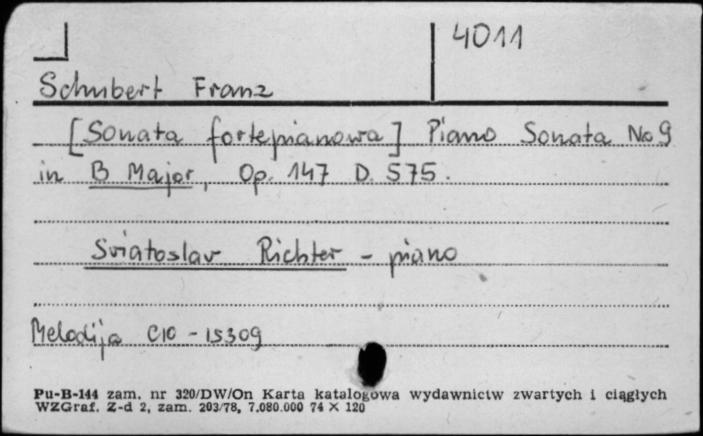 4011
Schubert Franz
[Sonata fortepianowa] Piano Sonata No 9
in B Major, Op. 147 D. 575.
Sviatoslav Richter - piano
Melodija C10 - 15309
Pu-B-144 zam. nr 320/DW/On Karta katalogowa wydawnictw zwartych i ciągłych
WZGraf. Z-d 2, zam. 203/78, 7.080.000 74 × 120